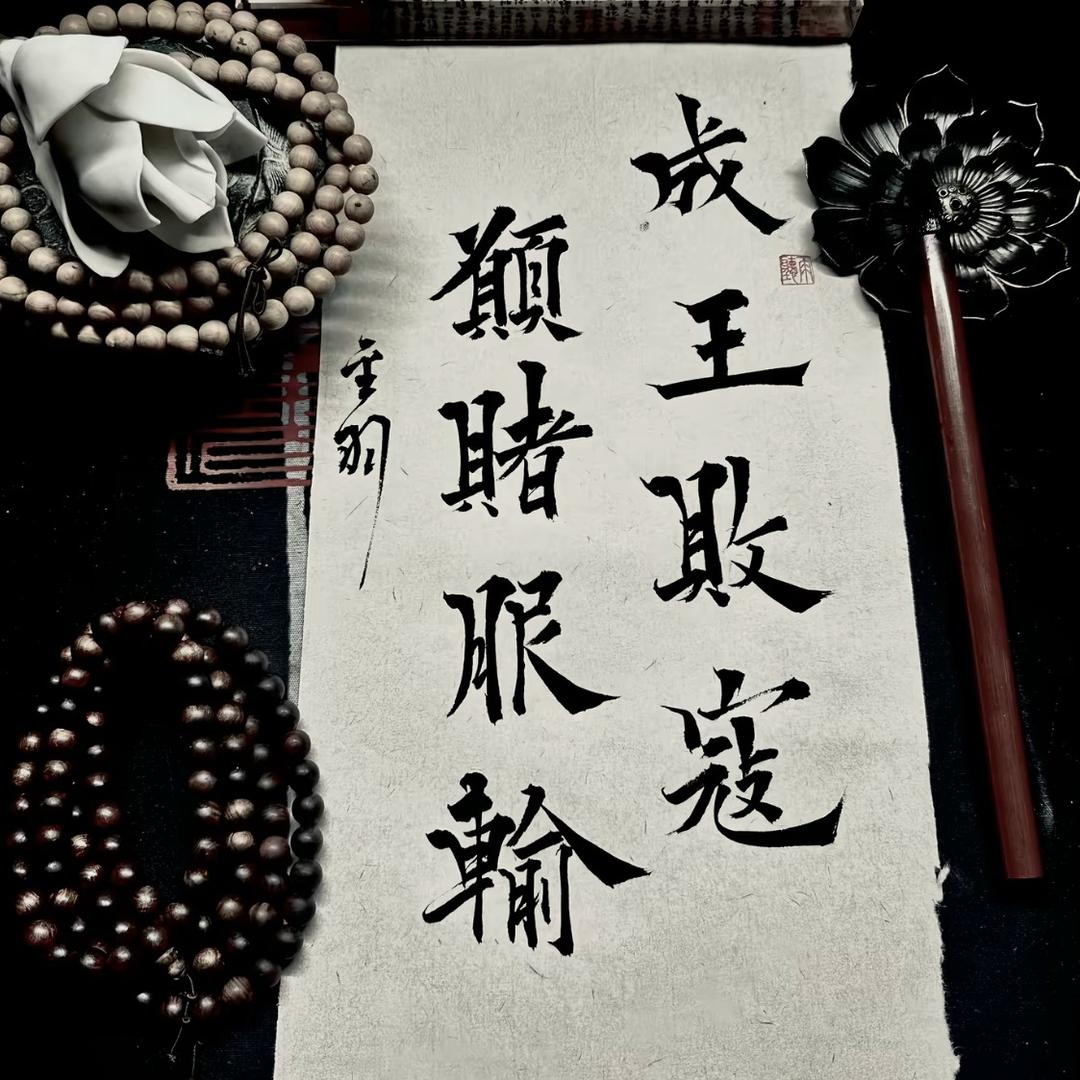 成王敗寇
願賭服輸